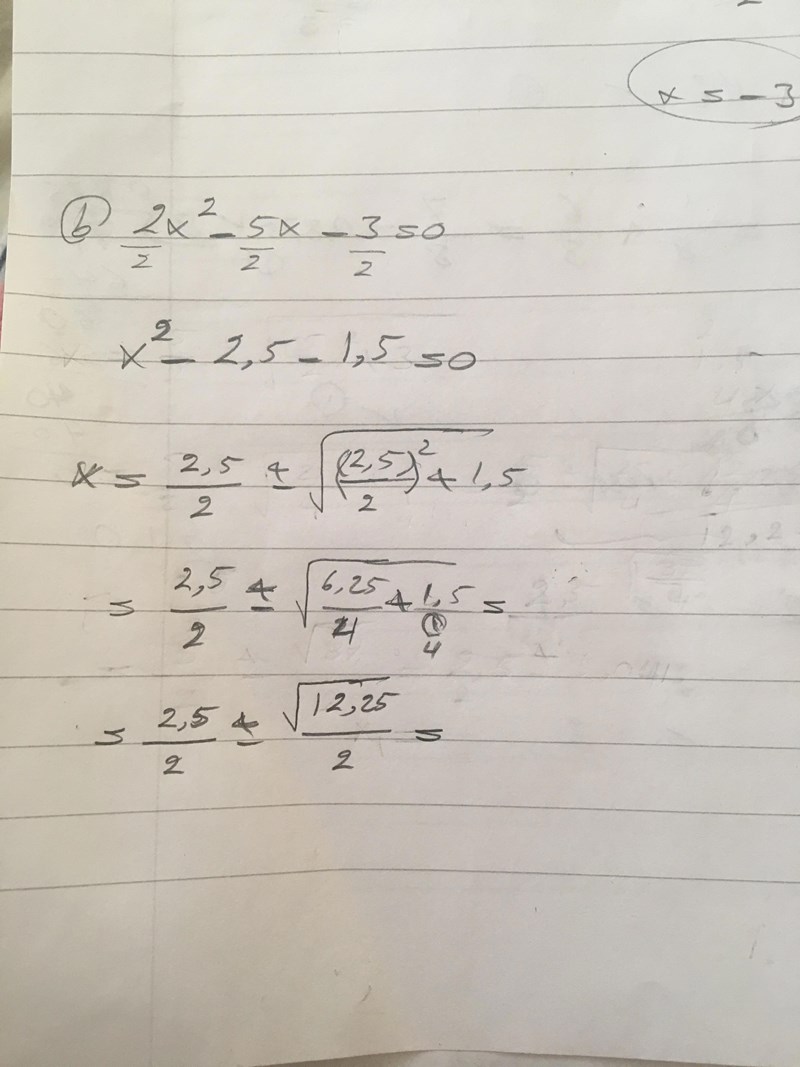 x = -3
(b) 2x²/2 - 5x/2 - 3/2 = 0
x² - 2,5 - 1,5 = 0
x = 2,5/2 ± √((2,5/2)² + 1,5
= 2,5/2 ± √(6,25/4 + 1,5/1 4) =
= 2,5/2 ± √12,25/2 =